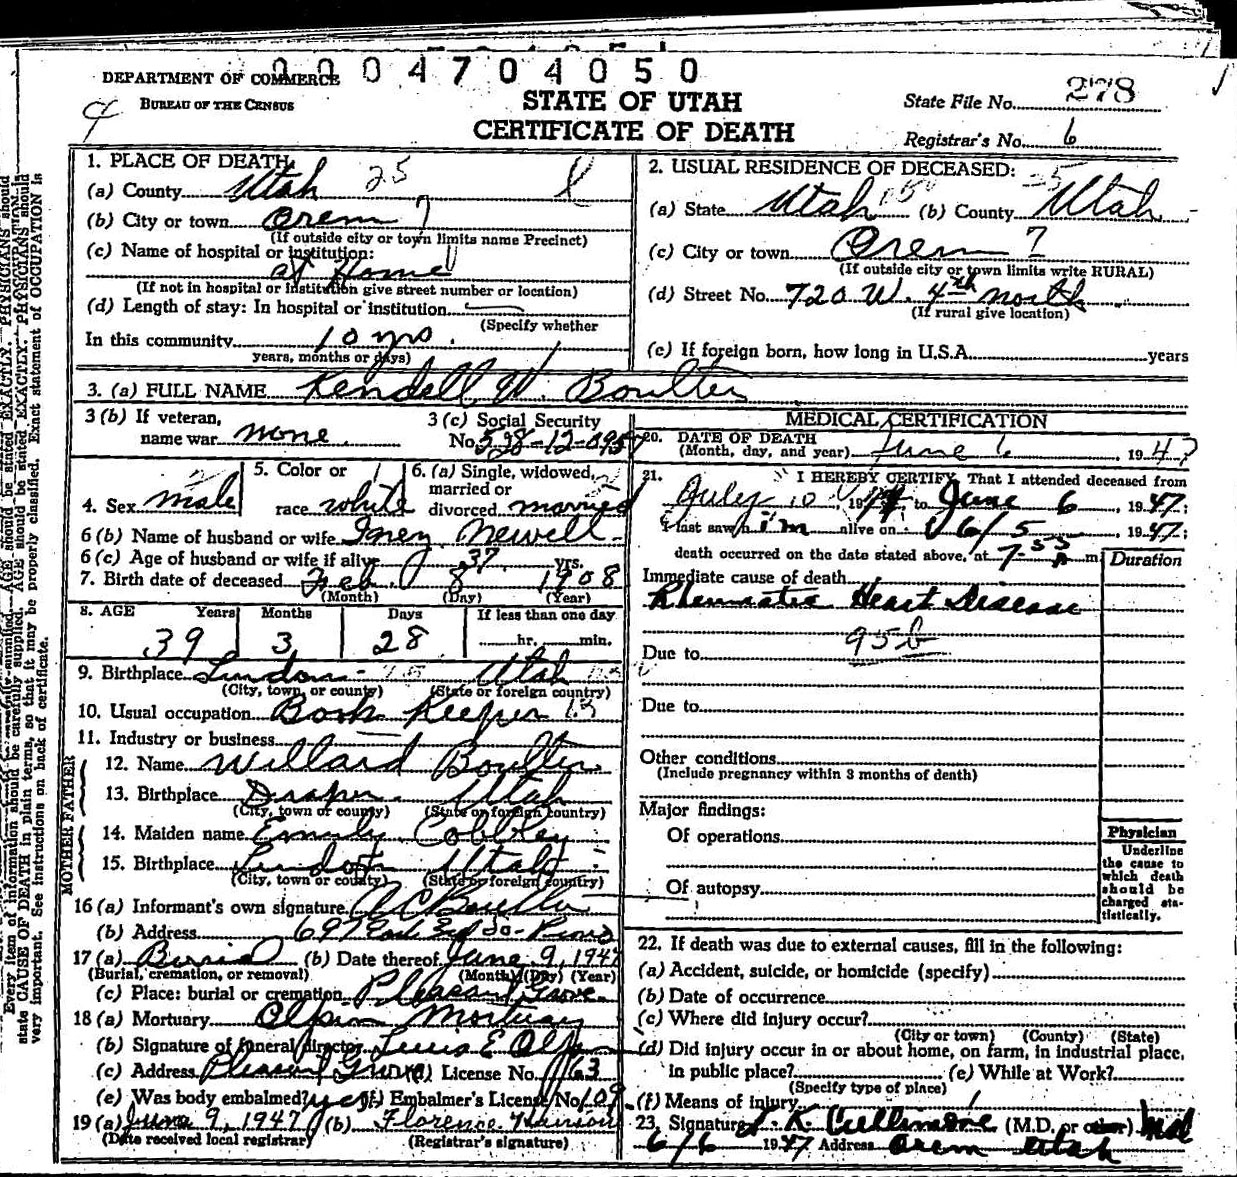 0004704050
DEPARTMENT OF COMMERCE
BUREAU OF THE CENSUS
STATE OF UTAH
CERTIFICATE OF DEATH
State File No. 278
Registrar's No. 6
1. PLACE OF DEATH:
(a) County Utah 25
(b) City or town Orem
(If outside city or town limits name Precinct)
(c) Name of hospital or institution:
at Home
(If not in hospital or institution give street number or location)
(d) Length of stay: In hospital or institution
(Specify whether
In this community 10 yrs.
years, months or days)
2. USUAL RESIDENCE OF DECEASED:
(a) State Utah (b) County Utah
(c) City or town Orem
(If outside city or town limits write RURAL)
(d) Street No. 720 W. 4th north
(If rural give location)
(e) If foreign born, how long in U.S.A. years
3. (a) FULL NAME Kendell W. Boulter
3 (b) If veteran,
name war none
3 (c) Social Security
No. 528-12-095
4. Sex male
5. Color or
race white
6. (a) Single, widowed,
married or
divorced married
6 (b) Name of husband or wife Inez Newell
6 (c) Age of husband or wife if alive 37 yrs.
7. Birth date of deceased Feb. 8 1908
(Month) (Day) (Year)
8. AGE Years Months Days If less than one day
39 3 28 hr. min.
9. Birthplace Lindon Utah
(City, town, or county) (State or foreign country)
10. Usual occupation Book Keeper
11. Industry or business
FATHER
12. Name Willard Boulter
13. Birthplace Draper Utah
(City, town or county) (State or foreign country)
MOTHER
14. Maiden name Emily Cobbley
15. Birthplace Lindon Utah
(City, town or county) (State or foreign country)
16 (a) Informant's own signature A C Boulter
(b) Address 697 So. Provo
17 (a) Burial (b) Date thereof June 9, 1947
(Burial, cremation, or removal) (Month) (Day) (Year)
(c) Place: burial or cremation Pleasant Grove
18 (a) Mortuary Olpin Mortuary
(b) Signature of funeral director E Olpin
(c) Address Pleasant Grove (d) License No. 63
(e) Was body embalmed? yes (f) Embalmer's License No. 109
19 (a) June 9, 1947 (b) Florence
(Date received local registrar) (Registrar's signature)
MEDICAL CERTIFICATION
20. DATE OF DEATH
(Month, day, and year) June 6, 1947
21. I HEREBY CERTIFY, That I attended deceased from
July 10, 19 to June 6, 1947;
I last saw him alive on 6/5 1947;
death occurred on the date stated above, at 7:55 A m
Duration
Immediate cause of death
Rheumatic Heart Disease
95b
Due to
Due to
Other conditions
(Include pregnancy within 3 months of death)
Major findings:
Of operations
Of autopsy
Physician
Underline
the cause to
which death
should be
charged sta-
tistically.
22. If death was due to external causes, fill in the following:
(a) Accident, suicide, or homicide (specify)
(b) Date of occurrence
(c) Where did injury occur?
(City or town) (County) (State)
(d) Did injury occur in or about home, on farm, in industrial place,
in public place? (e) While at Work?
(Specify type of place)
(f) Means of injury
23. Signature K. Cullimore (M.D. or other) MD
6/6 1947 Address Orem Utah
Every item of information should be carefully supplied. AGE should be stated EXACTLY. PHYSICIANS should
state CAUSE OF DEATH in plain terms, so that it may be properly classified. Exact statement of OCCUPATION is
very important. See instructions on back of certificate.